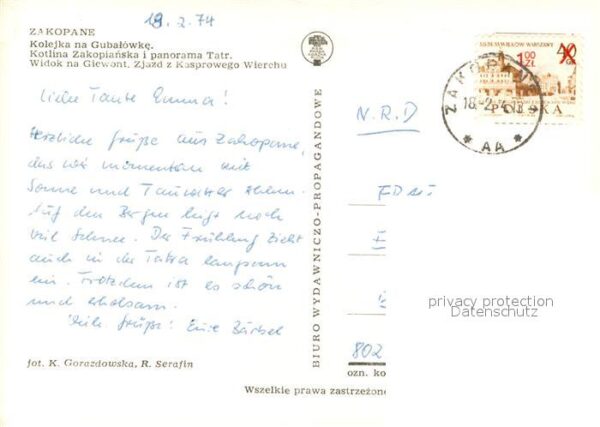 19.2.74
ZAKOPANE
Kolejka na Gubałówkę.
Kotlina Zakopiańska i panorama Tatr.
Widok na Giewont. Zjazd z Kasprowego Wierchu
Liebe Tante Emma!
Herzliche Grüße aus Zakopane,
das wir momentan mit
Sonne und Tauwetter erleben.
Auf den Bergen liegt noch
viel Schnee. Der Frühling zieht
auch in der Tatra langsam
ein. Trotzdem ist es schön
und erholsam.
Viele Grüße! Eure Bärbel
fot. K. Gorazdowska, R. Serafin
BIURO WYDAWNICZO-PROPAGANDOWE
1,00 ZŁ
40
POLSKA
ZAKOPANE
18.-2.74.
AA
N.R.D
802
privacy protection
Datenschutz
ozn. ko
Wszelkie prawa zastrzeżone